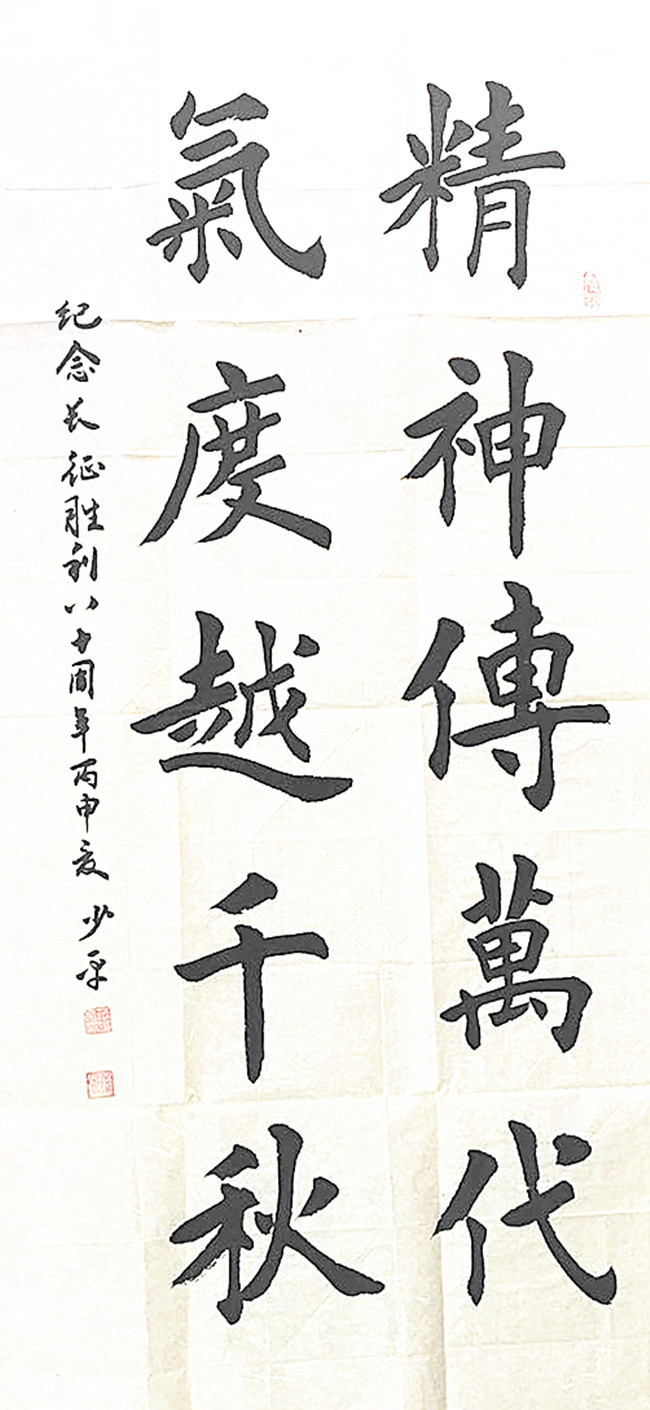 精神傳萬代
氣度越千秋
纪念长征胜利八十周年丙申夏少平